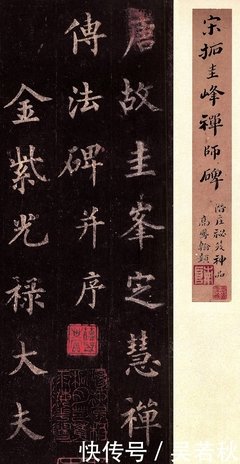 宋拓圭峰禪師碑
唐故圭峯定慧禪
傳法碑并序
金紫光祿大夫
快传号/吴若秋